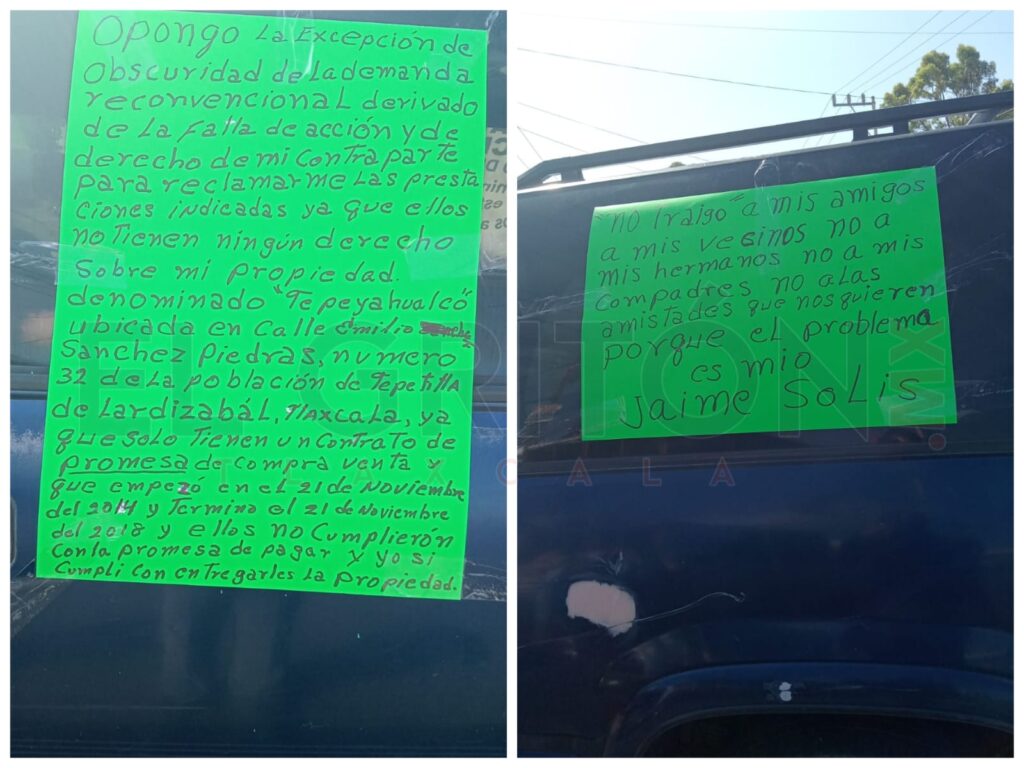 Opongo La Excepción de
Obscuridad de La demanda
reconvencional derivado
de La Falla de acción y de
derecho de mi contra parte
para reclamarme Las presta
ciones indicadas ya que ellos
no Tienen ningún derecho
Sobre mi propiedad.
denominado "Tepeyahualco"
ubicada en Calle Emilio
Sanchez Piedras, numero
32 de La población de Tepetilla
de Lardizabál, Tlaxcala, ya
que solo Tienen un contrato de
promesa de compra venta y
que empezó en el 21 de Noviembre
del 2014 y Termino el 21 de Noviembre
del 2018 y ellos no Cumplieron
Con la promesa de pagar y yo si
Cumpli con entregarles La propiedad.
"NO Traigo" a mis amigos
a mis vecinos no a
mis hermanos no a mis
compadres no a las
amistades que nos quieren
porque el problema
es mio
Jaime SoLis
EL GRITON.MX
TLAXCALA